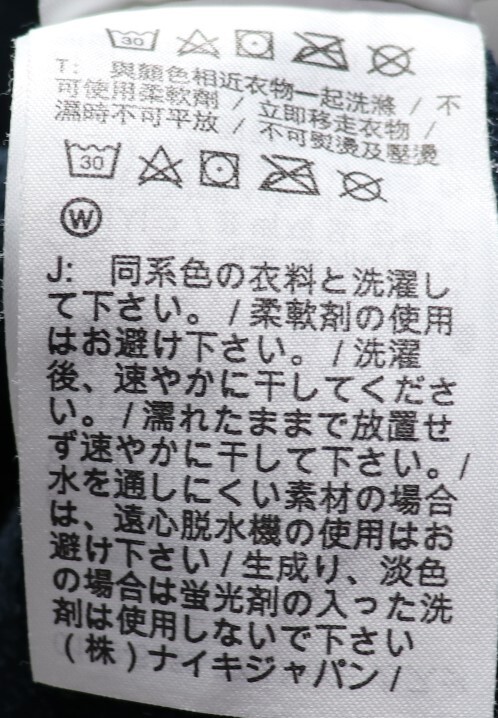 30
T: 與顏色相近衣物一起洗滌 / 不
可使用柔軟劑 / 立即移走衣物 /
濕時不可平放 / 不可熨燙及壓燙
30
W
J: 同系色の衣料と洗濯し
て下さい。 / 柔軟剤の使用
はお避け下さい。 / 洗濯
後、速やかに干してくださ
い。 / 濡れたままで放置せ
ず速やかに干して下さい。 /
水を通しにくい素材の場合
は、遠心脱水機の使用はお
避け下さい / 生成り、淡色
の場合は蛍光剤の入った洗
剤は使用しないで下さい
(株)ナイキジャパン /